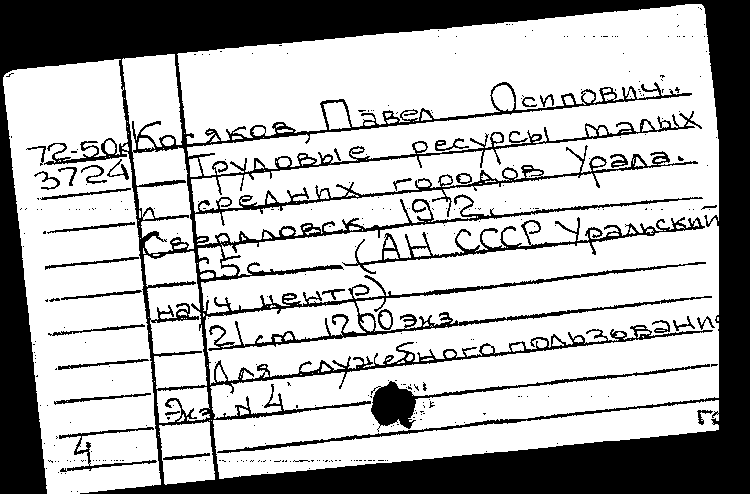 72-50к Косяков, Павел Осипович.
3724 Трудовые ресурсы малых
и средних городов Урала.
Свердловск, 1972.
65с. (АН СССР Уральский
науч. центр).
21 cm 1200 экз.
Для служебного пользования
Экз. N 4.
4